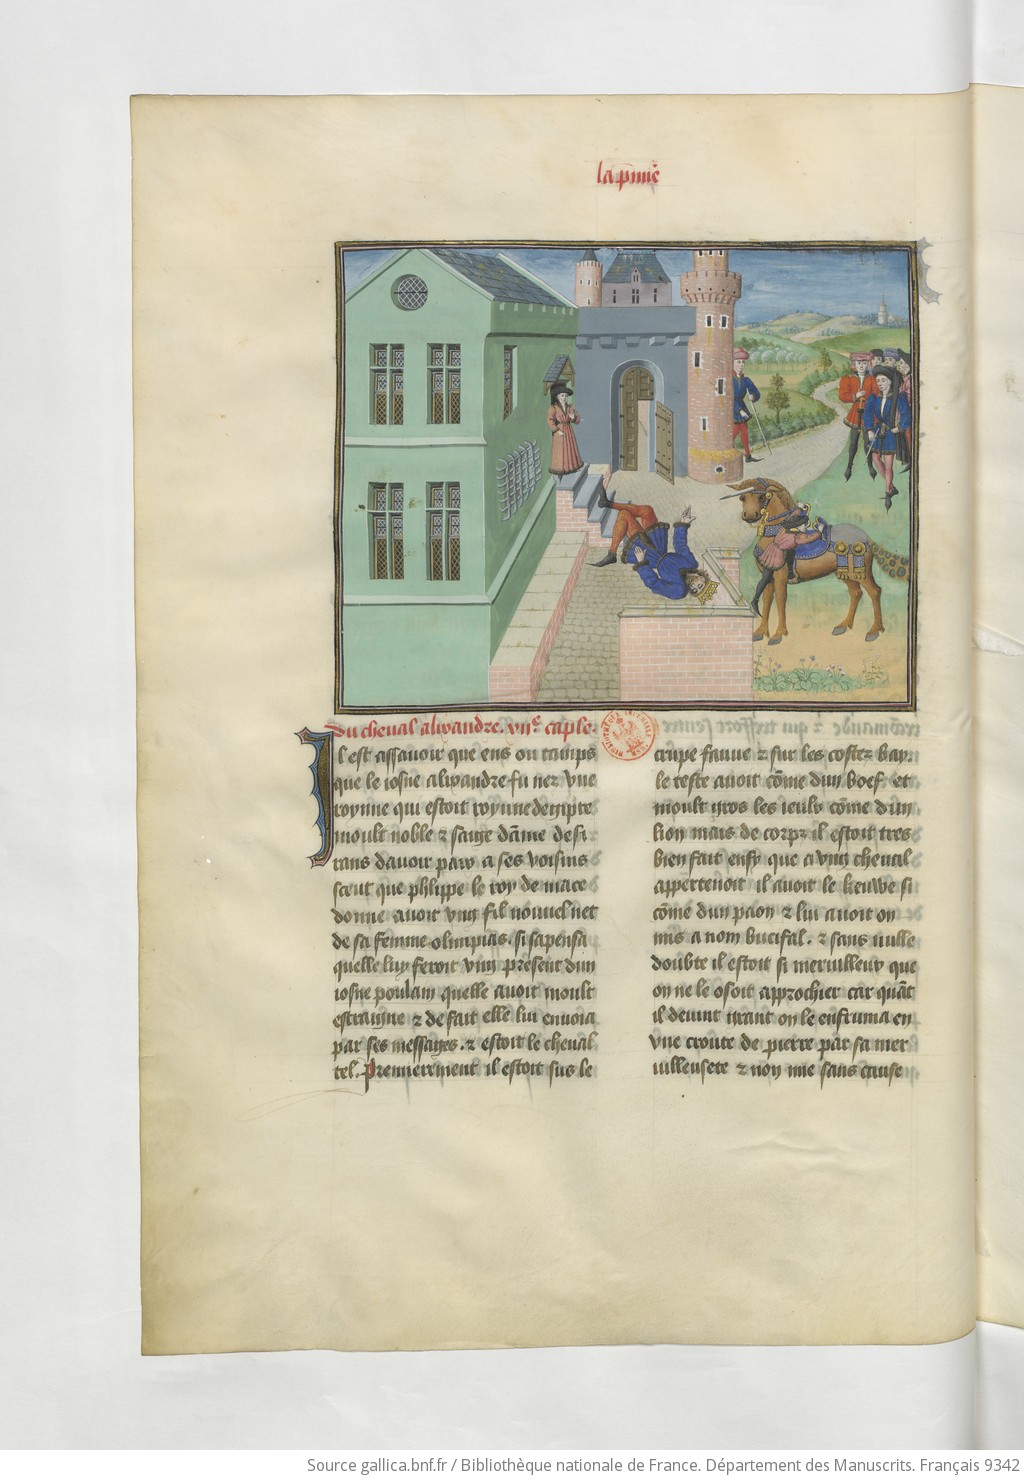 la p̄miē
Du cheual alixandre. viiᵉ. cap̄le.
Il est assauoir que ens ou temps
que le iosne alixandre fu nez vne
roynne qui estoit roynne degipte
moult noble ⁊ saige dame desi
rans dauoir paix a ses voisins
sceut que phlippe le roy de mace
donne auoit vng fil nouuel net
de sa femme olimpias. si sapensa
quelle luy feroit vng present dun
iosne poulain quelle auoit moult
estraigne ⁊ de fait elle lui enuoia
par ses messages. ⁊ estoit le cheual
tel. Premierement il estoit sus le
crupe fauue ⁊ sur les costez bay.
le teste auoit cōme dun boef. et
moult gros les ieulx cōme dun
lion mais de corpz il estoit tres
bien fait ensy que a vng cheual
appertenoit il auoit le keuwe si
cōme dun paon ⁊ lui auoit on
mis a nom bucifal. ⁊ sans nulle
doubte il estoit si merueilleux que
on ne le osoit approchier car quāt
il deuint grant on le enfruma en
vne croute de pierre par sa mer
uilleusete ⁊ non mie sans cause
Source gallica.bnf.fr / Bibliothèque nationale de France. Département des Manuscrits. Français 9342